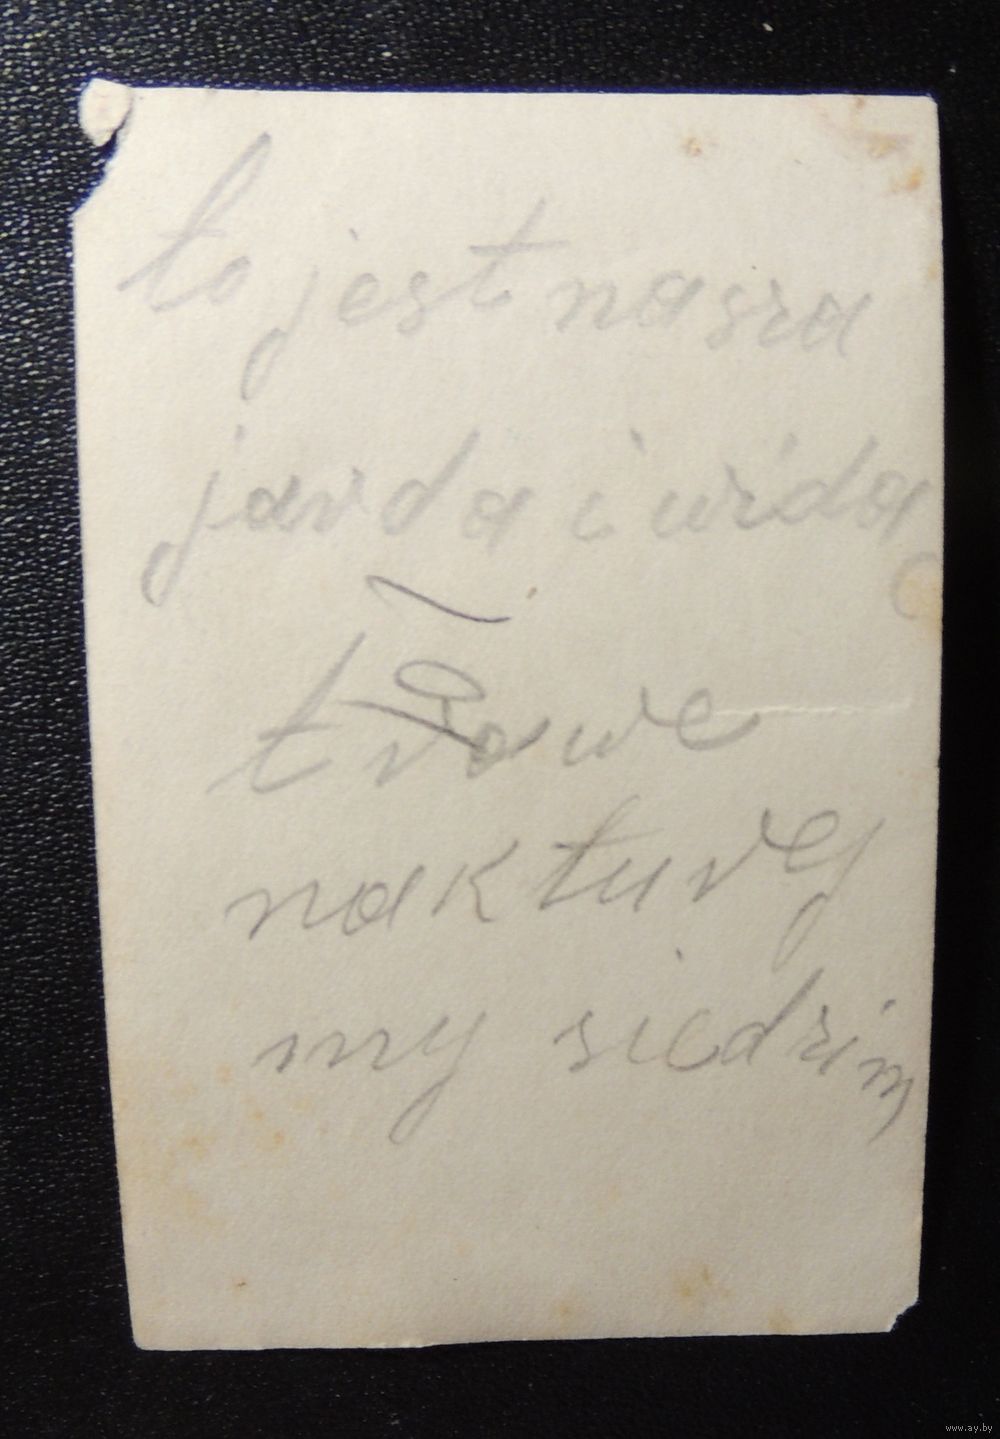 to jest nasza
jarda i widą
trawe
na kturej
my siedzim
www.ay.by